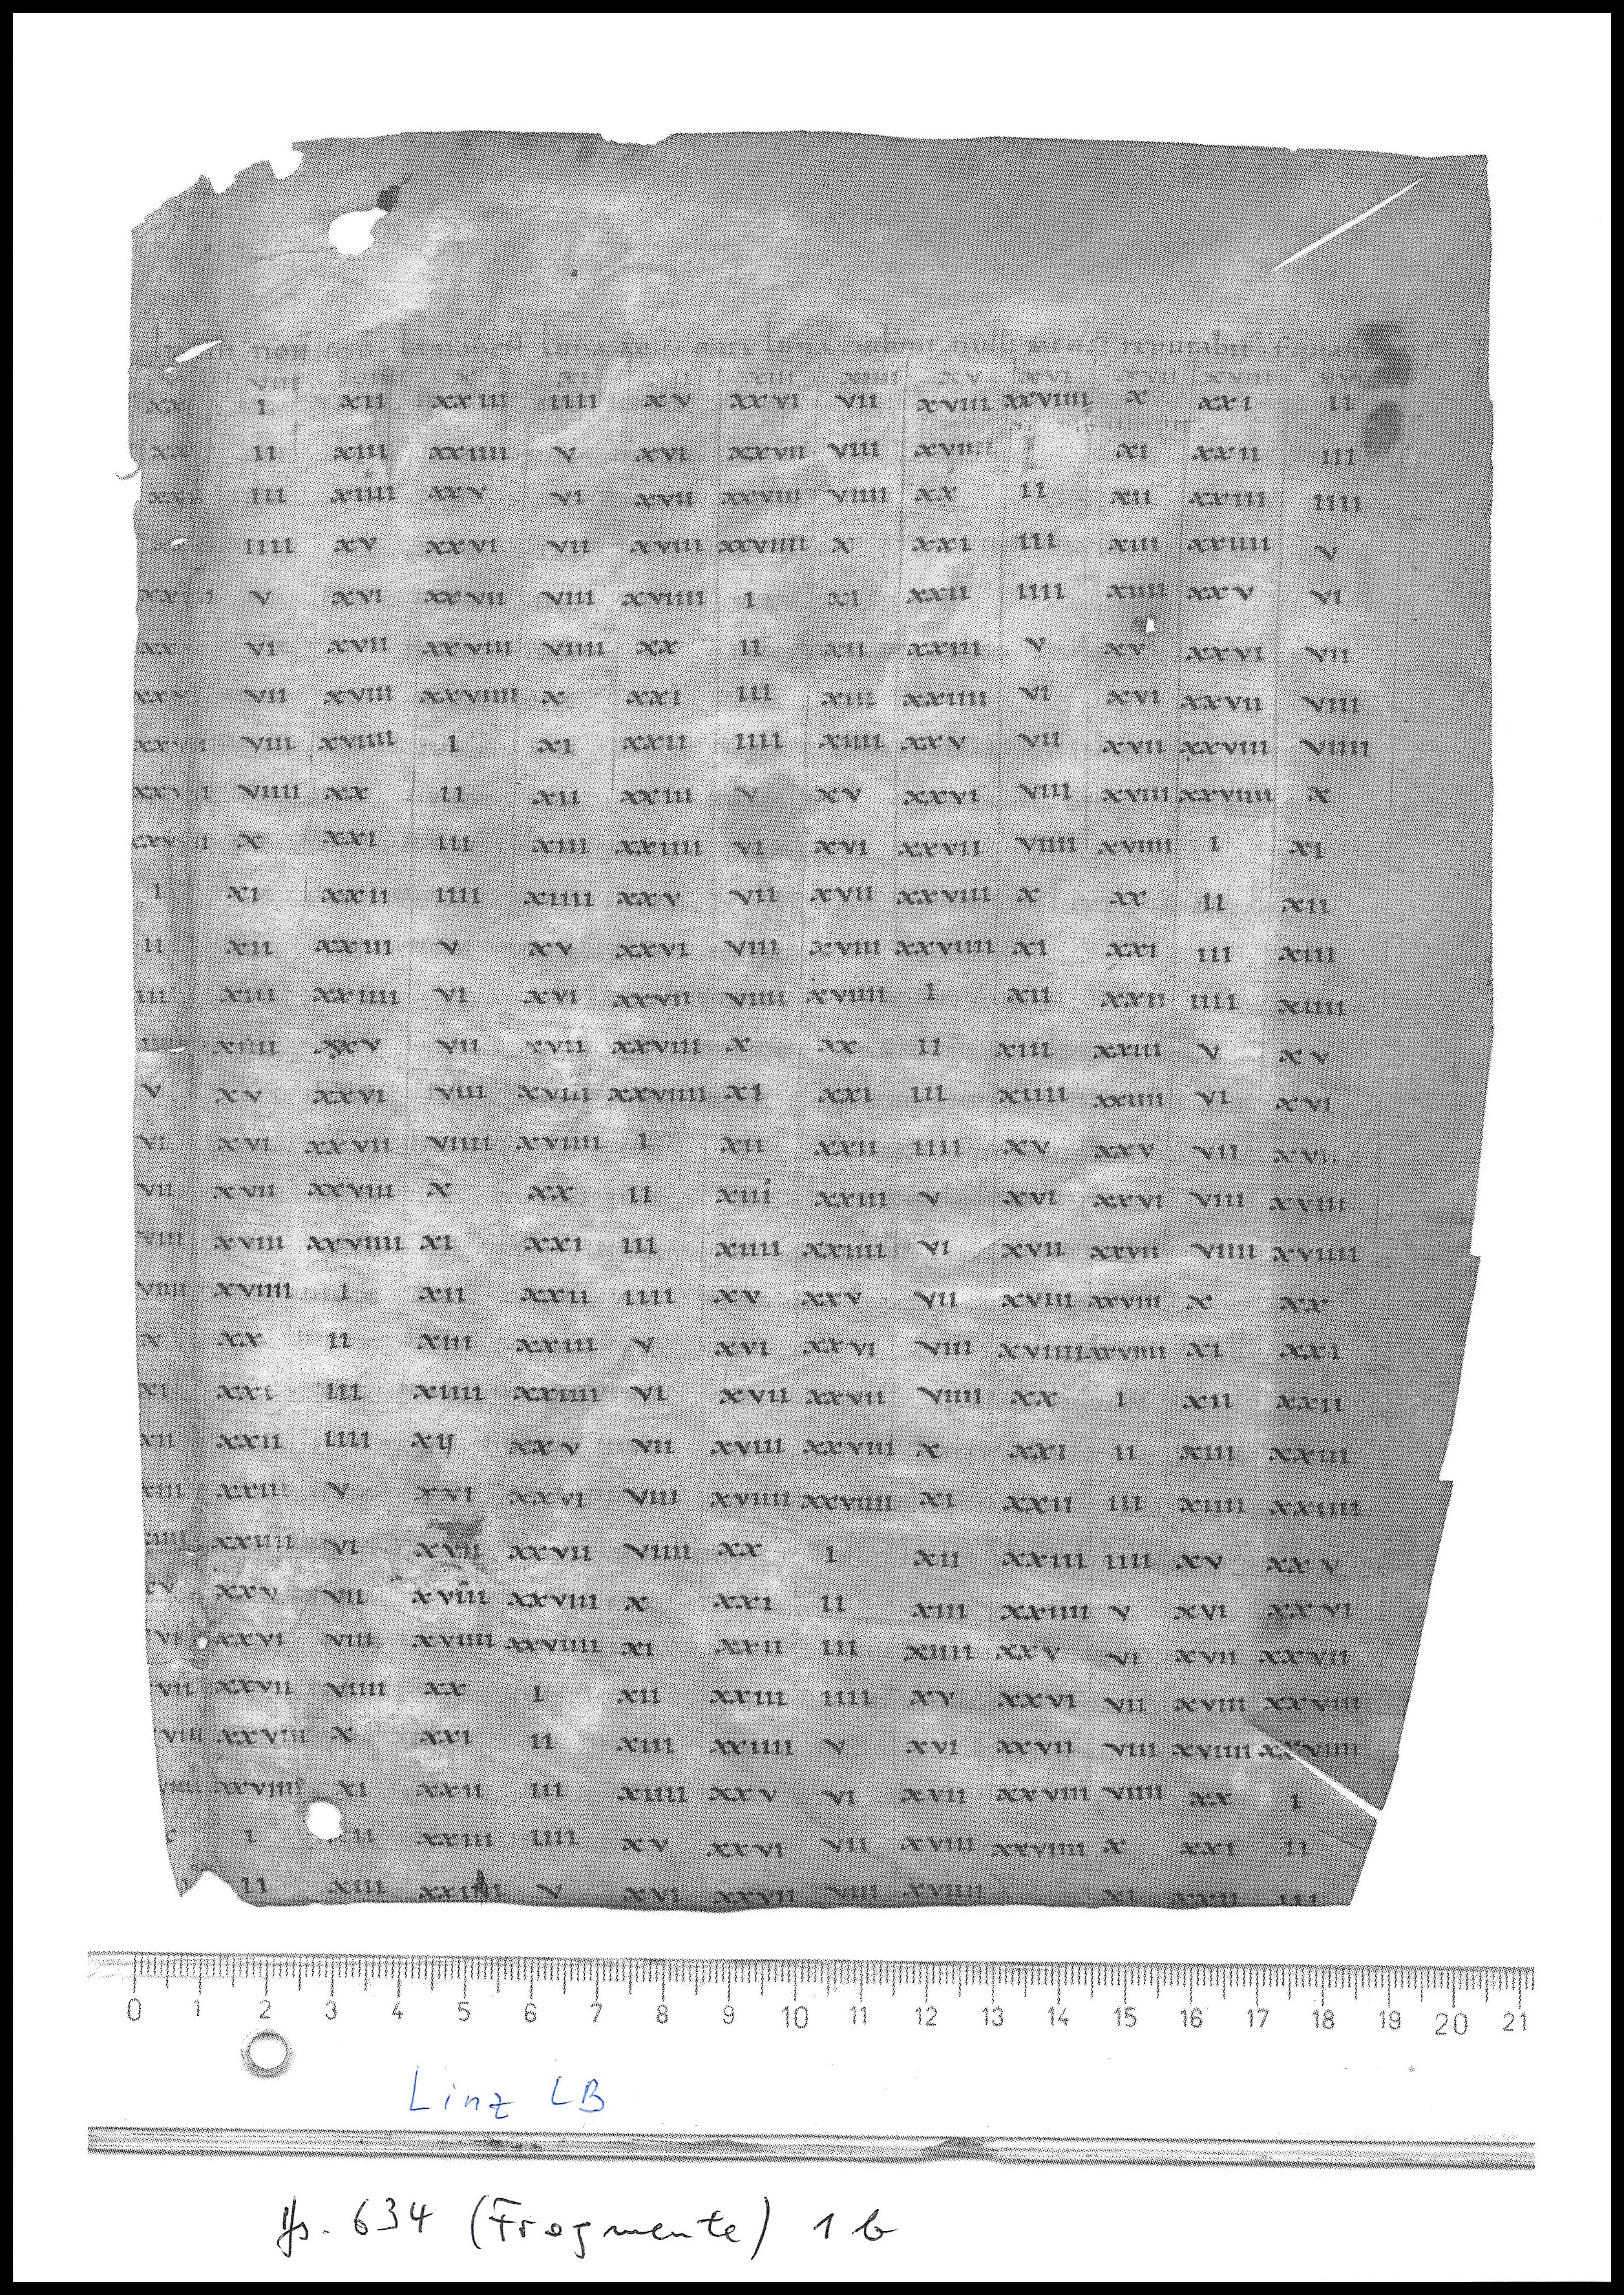 non luna luna nulli mensi reputabit
VIII X XI XII XIII XIIII XV XVI XVII XVIII
xx i xii xxiii iiii xv xxvi vii xviii xxviiii x xxi ii
ii xiii xxiiii v xvi xxvii viii xviiii xi xxii iii
iii xiiii xxv vi xvii xxviii viiii xx ii xii xxiii iiii
iiii xv xxvi vii xviii xxviiii x xxi iii xiii xxiiii v
v xvi xxvii viii xviiii i xi xxii iiii xiiii xxv vi
vi xvii xxviii viiii xx ii xii xxiii v xv xxvi vii
vii xviii xxviiii x xxi iii xiii xxiiii vi xvi xxvii viii
viii xviiii i xi xxii iiii xiiii xxv vii xvii xxviii viiii
viiii xx ii xii xxiii v xv xxvi viii xviii xxviiii x
x xxi iii xiii xxiiii vi xvi xxvii viiii xviiii i xi
i xi xxii iiii xiiii xxv vii xvii xxviii x xx ii xii
ii xii xxiii v xv xxvi viii xviii xxviiii xi xxi iii xiii
iii xiii xxiiii vi xvi xxvii viiii xviiii i xii xxii iiii xiiii
iiii xiiii xxv vii xvii xxviii x xx ii xiii xxiii v xv
v xv xxvi viii xviii xxviiii xi xxi iii xiiii xxiiii vi xvi
vi xvi xxvii viiii xviiii i xii xxii iiii xv xxv vii xvii
vii xvii xxviii x xx ii xiii xxiii v xvi xxvi viii xviii
viii xviii xxviiii xi xxi iii xiiii xxiiii vi xvii xxvii viiii xviiii
viiii xviiii i xii xxii iiii xv xxv vii xviii xxviii x xx
x xx ii xiii xxiii v xvi xxvi viii xviiii xxviiii xi xxi
xi xxi iii xiiii xxiiii vi xvii xxvii viiii xx i xii xxii
xii xxii iiii xij xxv vii xviii xxviii x xxi ii xiii xxiii
xiii xxiii v xvi xxvi viii xviiii xxviiii xi xxii iii xiiii xxiiii
xiiii xxiiii vi xvii xxvii viiii xx i xii xxiii iiii xv xxv
xv xxv vii xviii xxviii x xxi ii xiii xxiiii v xvi xxvi
vi xxvi viii xviiii xxviiii xi xxii iii xiiii xxv vi xvii xxvii
vii xxvii viiii xx i xii xxiii iiii xv xxvi vii xviii xxviii
viii xxviii x xxi ii xiii xxiiii v xvi xxvii viii xviiii xxviiii
viiii xxviiii xi xxii iii xiiii xxv vi xvii xxviii viiii xx i
i ii xxiii iiii xv xxvi vii xviii xxviiii x xxi ii
ii xiii xxiiii v xvi xxvii viii xviiii xi xxii iii
0 1 2 3 4 5 6 7 8 9 10 11 12 13 14 15 16 17 18 19 20 21
Linz LB
Hs. 634 (Fragmente) 1 b